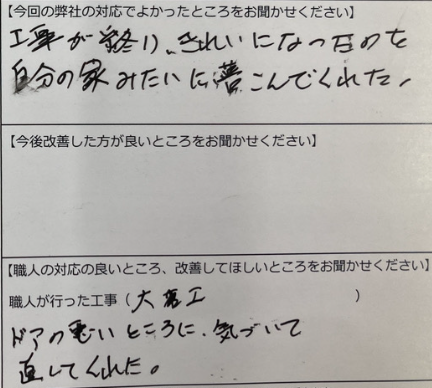 【今回の弊社の対応でよかったところをお聞かせください】
工事が終り、きれいになったのを
自分の家みたいに喜こんでくれた。
【今後改善した方が良いところをお聞かせください】
【職人の対応の良いところ、改善してほしいところをお聞かせください】
職人が行った工事（大工）
ドアの悪いところに、気づいて
直してくれた。